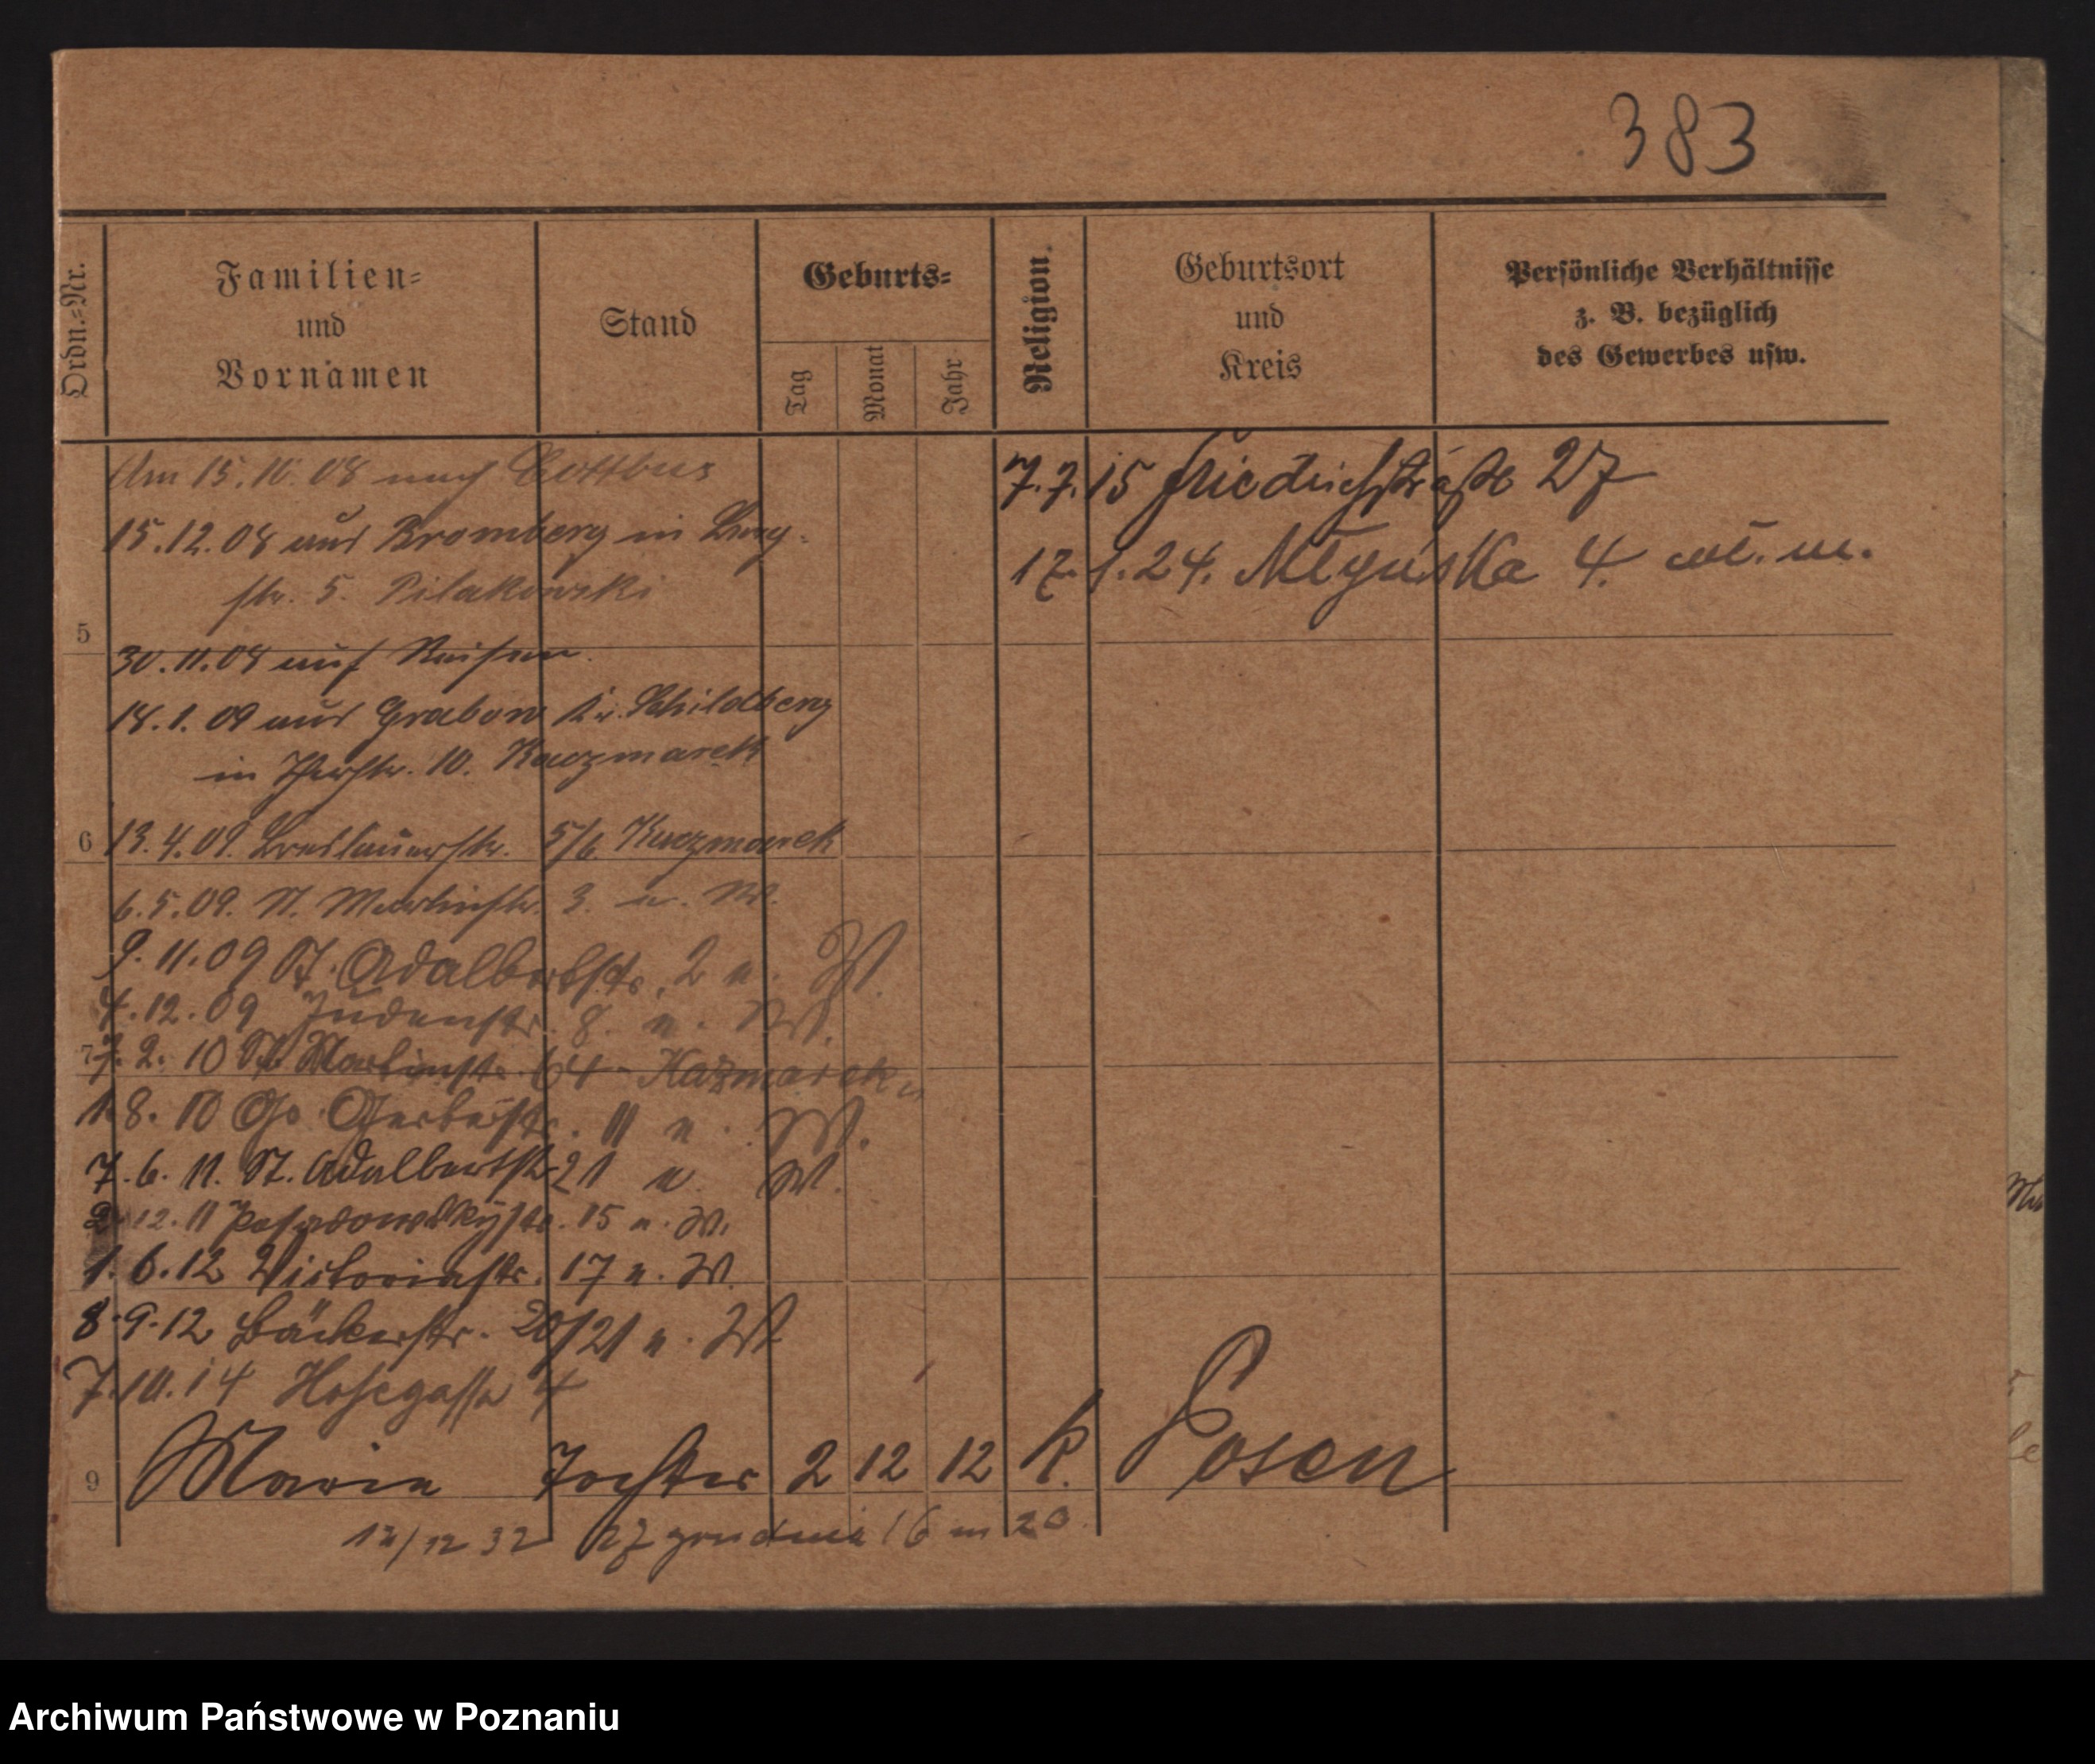 383
Ordn.-Nr.
Familien-
und
Vornamen
Stand
Geburts-
Tag
Monat
Jahr
Religion.
Geburtsort
und
Kreis
Persönliche Verhältnisse
z. B. bezüglich
des Gewerbes usw.
Am 15.10.08 nach Cottbus
15.12.08 aus Bromberg in
str. 5. Pilakowski
5
30.11.08 auf Reisen.
18.1.09 aus Grabow Kr. Schildberg
in 10. Kaczmarek
6
13.4.09. Breslauerstr. 5/6 Kaczmarek
6.5.09. St. Martinstr. 3. u. W.
9.11.09 St. Adalbertstr. 2 u. W.
4.12.09 Judenstr. 8. u. W.
7
7.2.10 St. Martinstr. 64 Kazmarek
1.8.10 Gr. Gerberstr. 11 u. W.
7.6.11. St. Adalbertstr. 21 u. W.
2.12.11 Posadowskystr. 15 u. W.
1.6.12 Victoriastr. 17 u. W.
8.9.12 Bäckerstr. 20/21 u. W.
7.10.14 Hosegasse 4
9
Maria Tochter 2 12 12 k. Posen
12/12 32 27 grudnia 16 m 20
7.7.15 Friedrichstraße 27
17.1.24. Młyńska 4. wł. m.
Archiwum Państwowe w Poznaniu